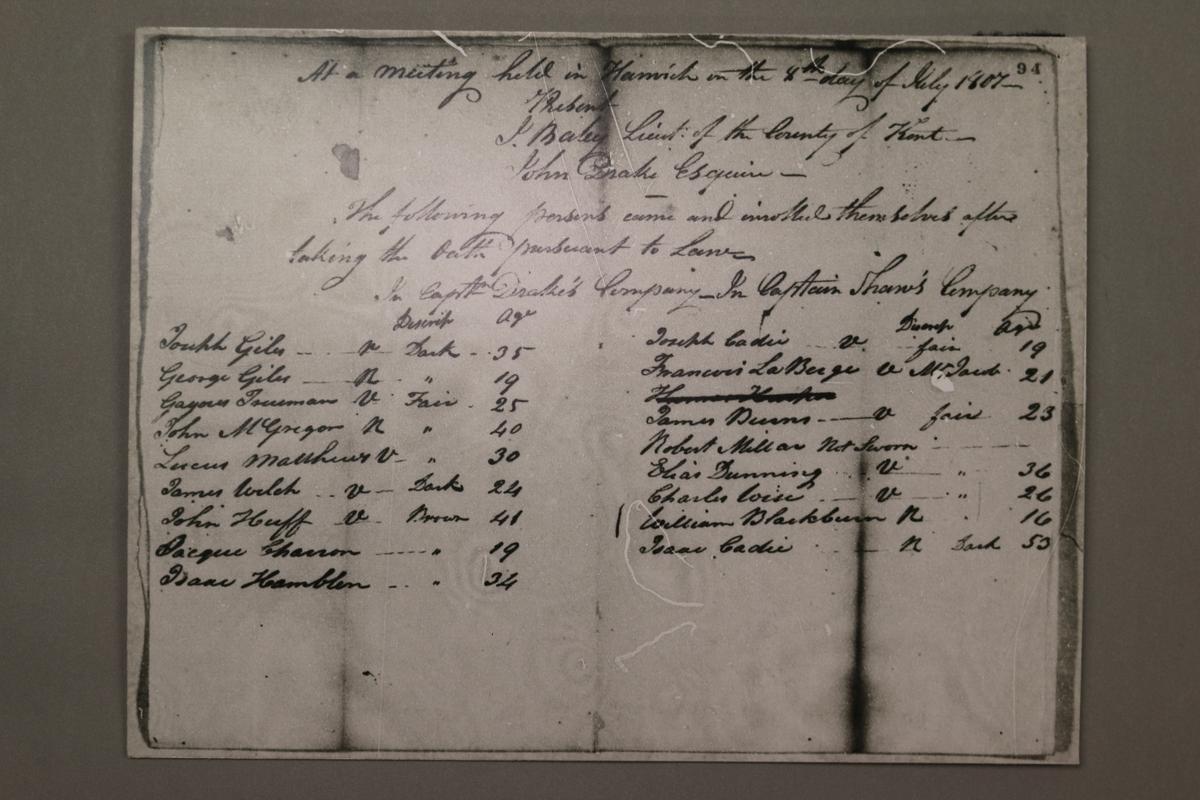 94
At a meeting held in Harwich on the 8th day of July 1807—
Present
J. Baley Lieut: of the County of Kent—
John Drake Esquire—
The following persons came and inrolled themselves after
taking the Oath pursuant to Law
In Captn Drake's Company—In Captain Shaw's Company
Descrip Age
Joseph Giles — R Dark - 35
George Giles — R " 19
Trueman V Fair 25
John McGregor R " 40
Matthews V - " 30
James Welch .. V — Dark 24
John Huff V - Brown 41
Jacque Charron ---- " 19
Isaac Hamblen -- " 34
Descrip Age
Joseph Cadie V fair 19
Francois La Berge V 21
James Burns — V fair 23
Robert Millar Not Sworn
Elias Dunning V " 36
Charles Wise V " 26
William Blackburn R 16
Isaac Cadie — R Dark 53